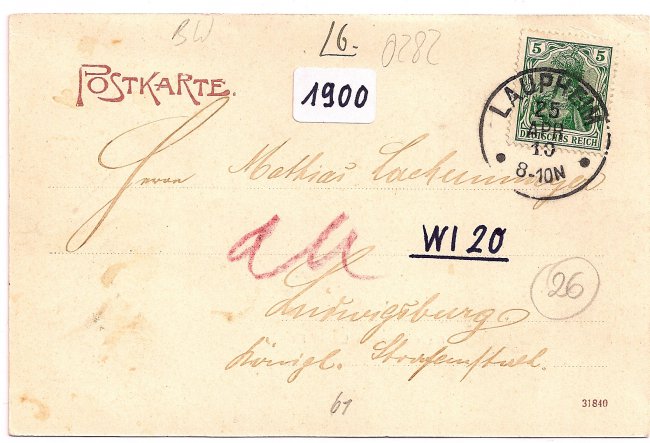 BW
L6.
0282
POSTKARTE.
1900
5 5
DEUTSCHES REICH
LAUPHEIM
25
APR
10
8-10N
Herrn Mathias
WI 20
Ludwigsburg.
26
Königl. Strafanstalt.
61
31840